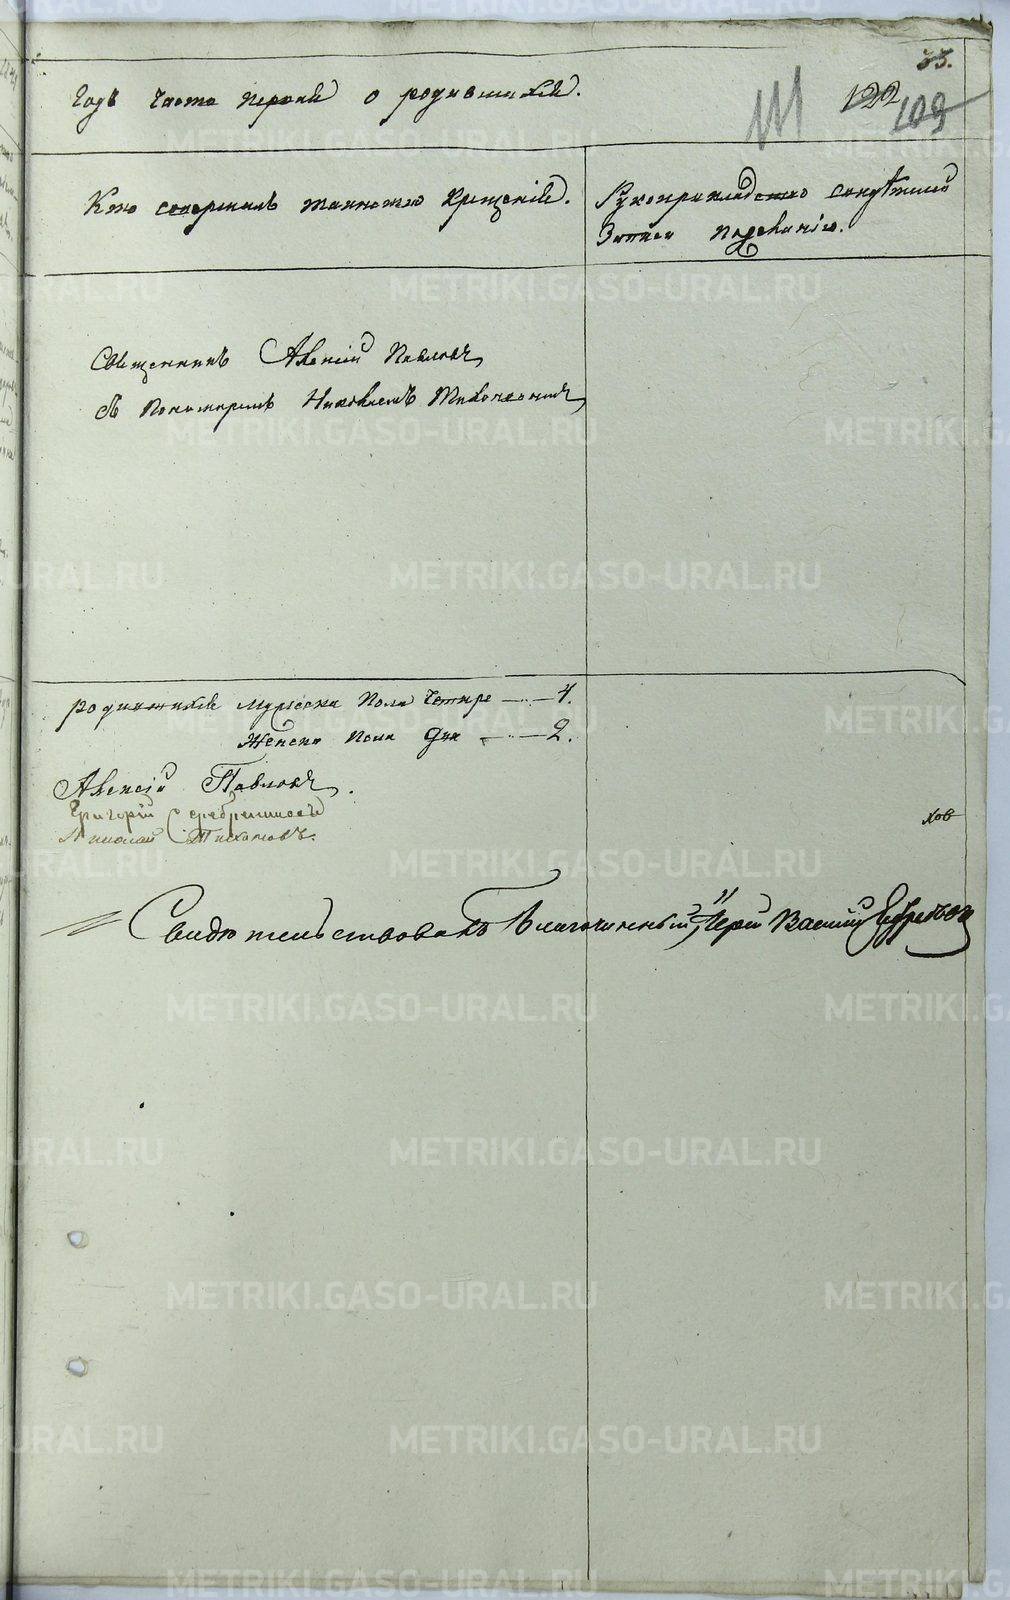 33.
Годъ часть первой о родившихся.
111 122 109
Кто совершалъ таинство крещенія.
Рукоприкладство свидѣтелей
записи по желанію.
Священникъ Алексій Павловъ
съ пономаремъ Николаемъ Тихоновымъ
родившихся мужеска пола четыре 4.
женска пола два 2.
Алексій Павловъ.
Григорій Серебренниковъ
Николай Тихоновъ.
ховъ
Свидѣтельствовалъ Благочинный, Іерей Василій
METRIKI.GASO-URAL.RU